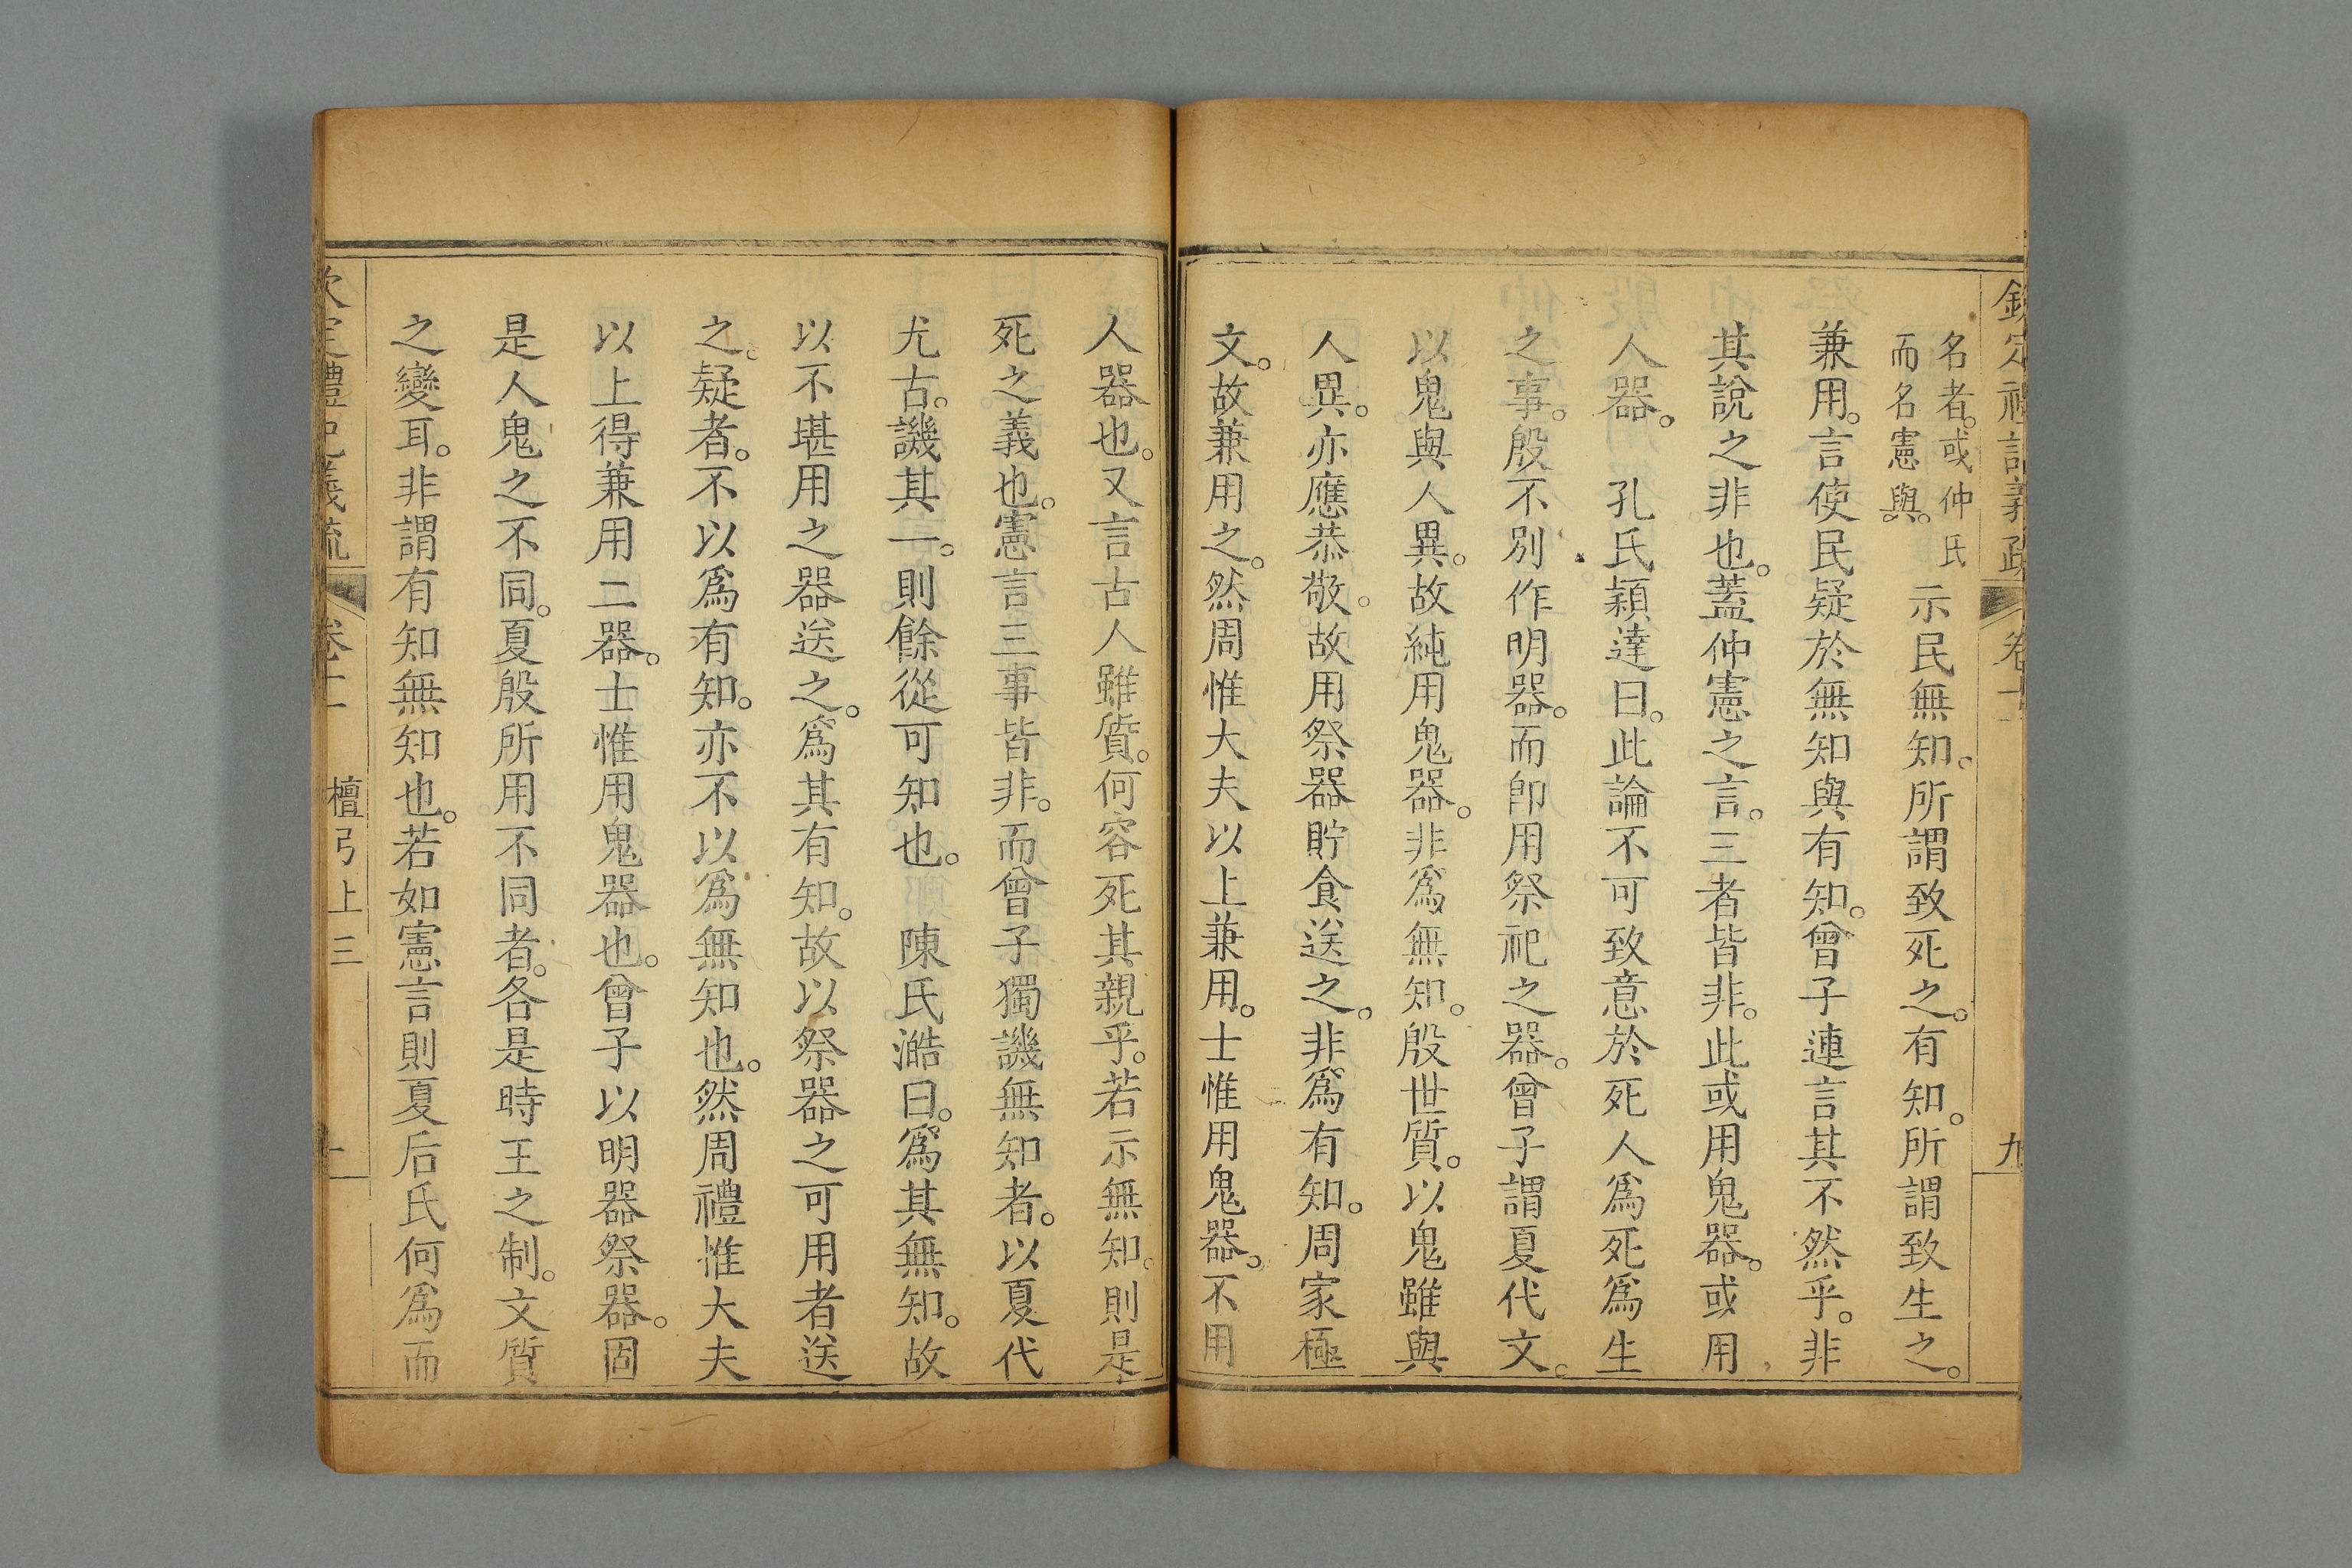 欽定禮記義疏 卷十 九
名者。或仲氏
而名憲與。
示民無知。所謂致死之。有知。所謂致生之。
兼用。言使民疑於無知與有知。曾子連言其不然乎。非
其說之非也。蓋仲憲之言。三者皆非。此或用鬼器。或用
人器。 孔氏穎達曰。此論不可致意於死人爲死爲生
之事。殷不別作明器。而卽用祭祀之器。曾子謂夏代文。
以鬼與人異。故純用鬼器。非爲無知。殷世質。以鬼雖與
人異。亦應恭敬。故用祭器貯食送之。非爲有知。周家極
文。故兼用之。然周惟大夫以上兼用。士惟用鬼器。不用
人器也。又言古人雖質。何容死其親乎。若示無知。則是
死之義也。憲言三事皆非。而曾子獨譏無知者。以夏代
尤古。譏其一。則餘從可知也。 陳氏澔曰。爲其無知。故
以不堪用之器送之。爲其有知。故以祭器之可用者送
之。疑者。不以爲有知。亦不以爲無知也。然周禮惟大夫
以上得兼用二器。士惟用鬼器也。曾子以明器祭器。固
是人鬼之不同。夏殷所用不同者。各是時王之制。文質
之變耳。非謂有知無知也。若如憲言則夏后氏何爲而
欽定禮記義疏 檀弓上三